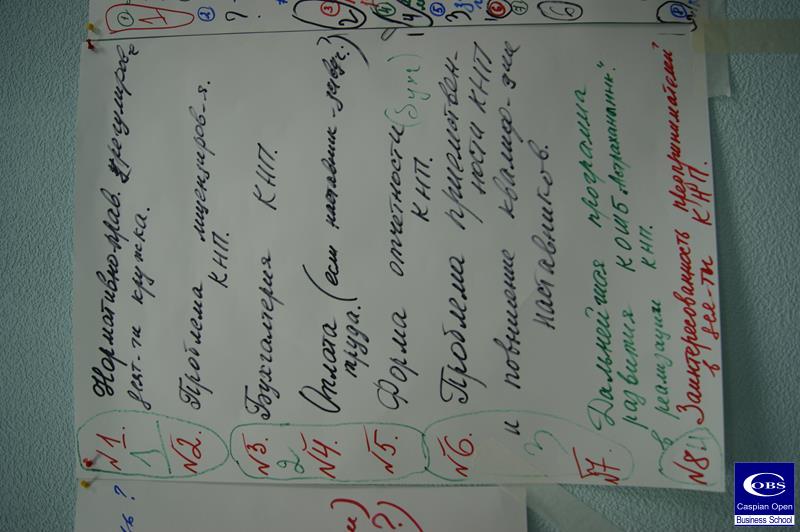 №1. Нормативно-прав. регулиров-е
деят-ти кружка.
№2. Проблема лицензиров-я.
КНП.
№3. Бухгалтерия КНП.
№4. Оплата (если наставник -
труда.
№5. Форма отчетности
КНП.
№6. Проблема приемствен-
ности КНП
и повышение квалиф-ции
наставников.
№7. Дальнейшая программа
развития КОШБ "Астраханлинк".
в реализации КНП.
№8 Заинтересованность предпринимателей
в дея-ти КНП.
1
2
3
COBS
Caspian Open
Business School